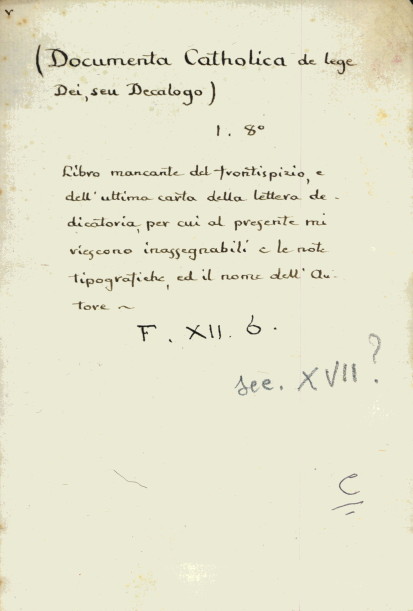 v
(Documenta Catholica de lege
Dei, seu Decalogo)
1. 8º
Libro mancante del frontispizio, e
dell'ultima carta della lettera de-
dicatoria, per cui al presente mi
riescono inassegnabili e le note
tipografiche, ed il nome dell'Au-
tore ~
F. XII. 6.
sec. XVII?
C